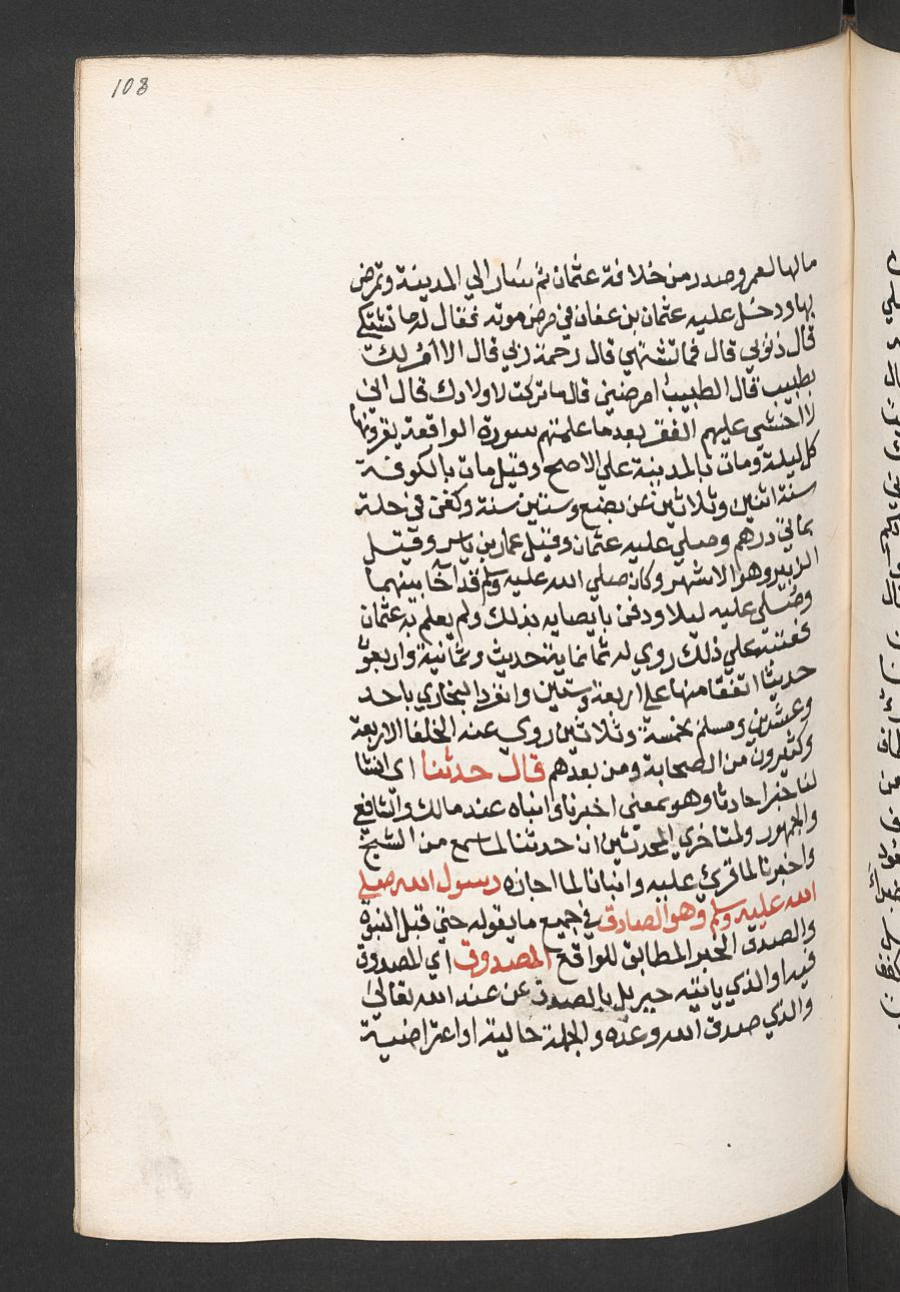 108
مالها لعمر وصدر من خلافة عثمان ثم سار الي المدينة وتمرض
بها ودخل عليه عثمان بن عفان في مرض موته فقال له ما تشتكي
قال ذنوبي قال فما تشتهي قال رحمة ربي قال الا امر لك
بطبيب قال الطبيب امرضني قال ما تركت لاولادك قال اني
لا اخشي عليهم الفقر بعد ما علمتهم سورة الواقعة يقرونها
كل ليلة ومات بالمدينة علي الاصح وقيل مات بالكوفة
سنة اثنين وثلاثين عن بضع وستين سنة وكفن في حلة
بماتي درهم وصلي عليه عثمان وقيل عمار بن ياسر وقيل
الزبير وهو الاشهر وكان صلي الله عليه وسلم قد اخا بينهما
وصلي عليه ليلا ودفن بايصايه بذلك ولم يعلم به عثمان
فعتبته علي ذلك روي له ثمانماية حديث وثمانية واربعون
حديثا اتفقا منها علي اربعة وستين وانفرد البخاري باحد
وعشرين ومسلم بخمسة وثلاثين روي عنه الخلفا الاربعة
وكثيرون من الصحابة ومن بعدهم قال حدثنا اي انشا
لنا خبرا حادثا وهو بمعني اخبرنا وانباه عند مالك والشافعي
والجمهور ولمتاخري المحدثين ان حدثنا لما سمع من الشيخ
واخبرنا لما قري عليه وانبانا لما اجازه رسول الله صلي
الله عليه وسلم وهو الصادق في جميع ما يقوله حتي قبل النبوة
والصدق الخبر المطابق للواقع المصدوق اي المصدوق
فيه او الذي ياتيه جبريل بالصدق عن عند الله تعالي
والذي صدق الله وعده والجملة حالية او اعتراضية